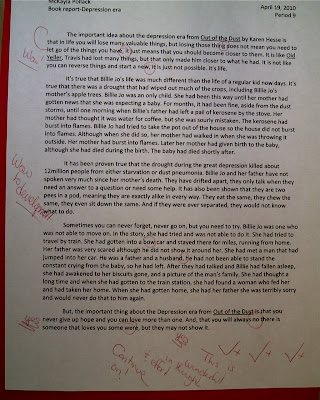 McKayla Pollack April 19, 2010
Book report-Depression era Period 9
The important idea about the depression era from Out of the Dust by Karen Hesse is
that in life you will lose many valuable things, but losing those things does not mean you need to
let go of the things you have, it just means that you should become closer to them. It is like Old
Yeller, Travis had lost many things, but that only made him closer to what he had. It is not like
you can reverse things and start a new, it is just not possible. It's life.
Wow
It's true that Billie Jo's life was much different than the life of a regular kid now days. It's
true that there was a drought that had wiped out much of the crops, including Billie Jo's
mother's apple trees. Billie Jo was an only child. She had been this way until her mother had
gotten news that she was expecting a baby. For months, it had been fine, aside from the dust
storms, until one morning when Billie's father had left a pail of kerosene by the stove. Her
mother had thought it was water for coffee, but she was sourly mistaken. The kerosene had
burst into flames. Billie Jo had tried to take the pot out of the house so the house did not burst
into flames. Although when she did so, her mother had walked in when she was throwing it
outside. Her mother had burst into flames. Later her mother had given birth to the baby,
although she had died during the birth. The baby had died shortly after.
Wow
development
It has been proven true that the drought during the great depression killed about
12million people from either starvation or dust pneumonia. Billie Jo and her father have not
spoken very much since her mother's death. They have drifted apart, they only talk when they
need an answer to a question or need some help. It has also been shown that they are two
pees in a pod, meaning they are exactly alike in every way. They eat the same, they chew the
same, they even sit down the same. And if they were ever separated, they would not know
what to do.
Sometimes you can never forget, never go on, but you need to try. Billie Jo was one who
was not able to move on. In the story, she had tried and was not able to do it. She had tried to
travel by train. She had gotten into a boxcar and stayed there for miles, running from home.
Her father was very scared although he did not show it around her. She had met a man that had
jumped into her car. He was a father and a husband, he had not been able to stand the
constant crying from the baby, so he had left. After they had talked and Billie had fallen asleep,
she had awakened to her biscuits gone, and a picture of the man's family. She had thought a
long time and when she had gotten to the train station, she had found a woman who fed her
and had taken her home. When she had gotten home, she had her father she was terribly sorry
and would never do that to him again.
But, the important thing about the Depression era from Out of the Dust is that you
never give up hope and you can love more than one. And, that you will always no there is
someone that loves you some were, but they may not show it.
yes
This is
wonderful
in thought
& effort
Continue
on!